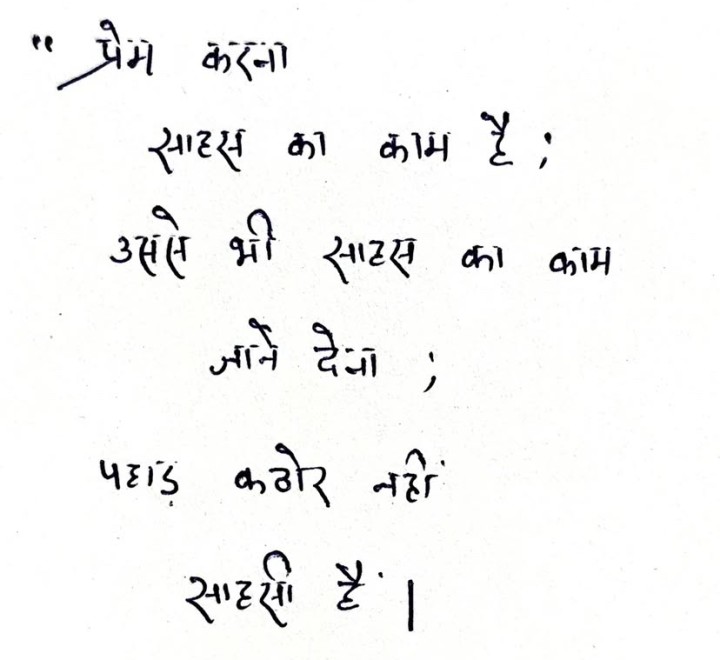 “ प्रेम करना
साहस का काम है ;
उससे भी साहस का काम
जाने देना ;
पहाड़ कठोर नहीं
साहसी हैं |